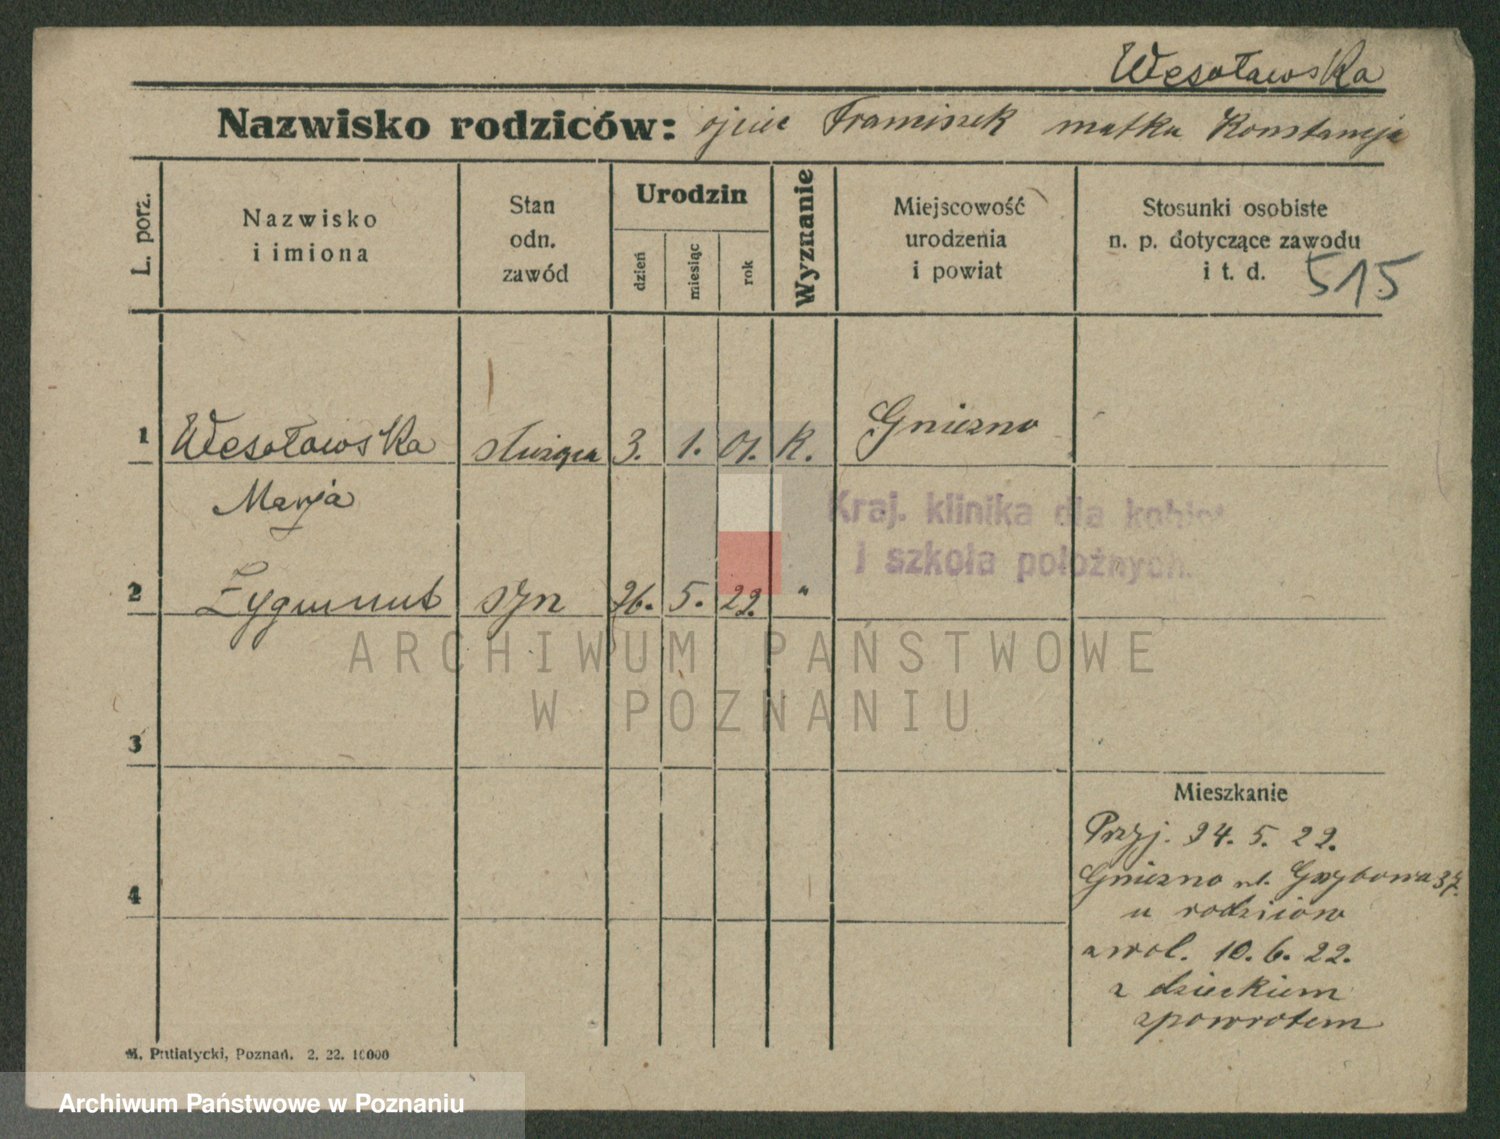 Wesołowska
Nazwisko rodziców: ojciec Franciszek matka Konstancja
L. porz.
Nazwisko
i imiona
Stan
odn.
zawód
Urodzin
dzień
miesiąc
rok
Wyznanie
Miejscowość
urodzenia
i powiat
Stosunki osobiste
n. p. dotyczące zawodu
i t. d.
515
1 Wesołowska służąca 3. 1. 01. K. Gniezno
Marja
Kraj. klinika dla kobiet
i szkoła położnych.
2 Zygmunt syn 26. 5. 22. "
ARCHIWUM PAŃSTWOWE
W POZNANIU
3
Mieszkanie
Przyj. 24. 5. 22.
4
Gniezno ul. Grzybowa 37.
u rodziców
zwol. 10. 6. 22.
z dzieckiem
zpowrotem
M. Putiatycki, Poznań. 2. 22. 10000
Archiwum Państwowe w Poznaniu